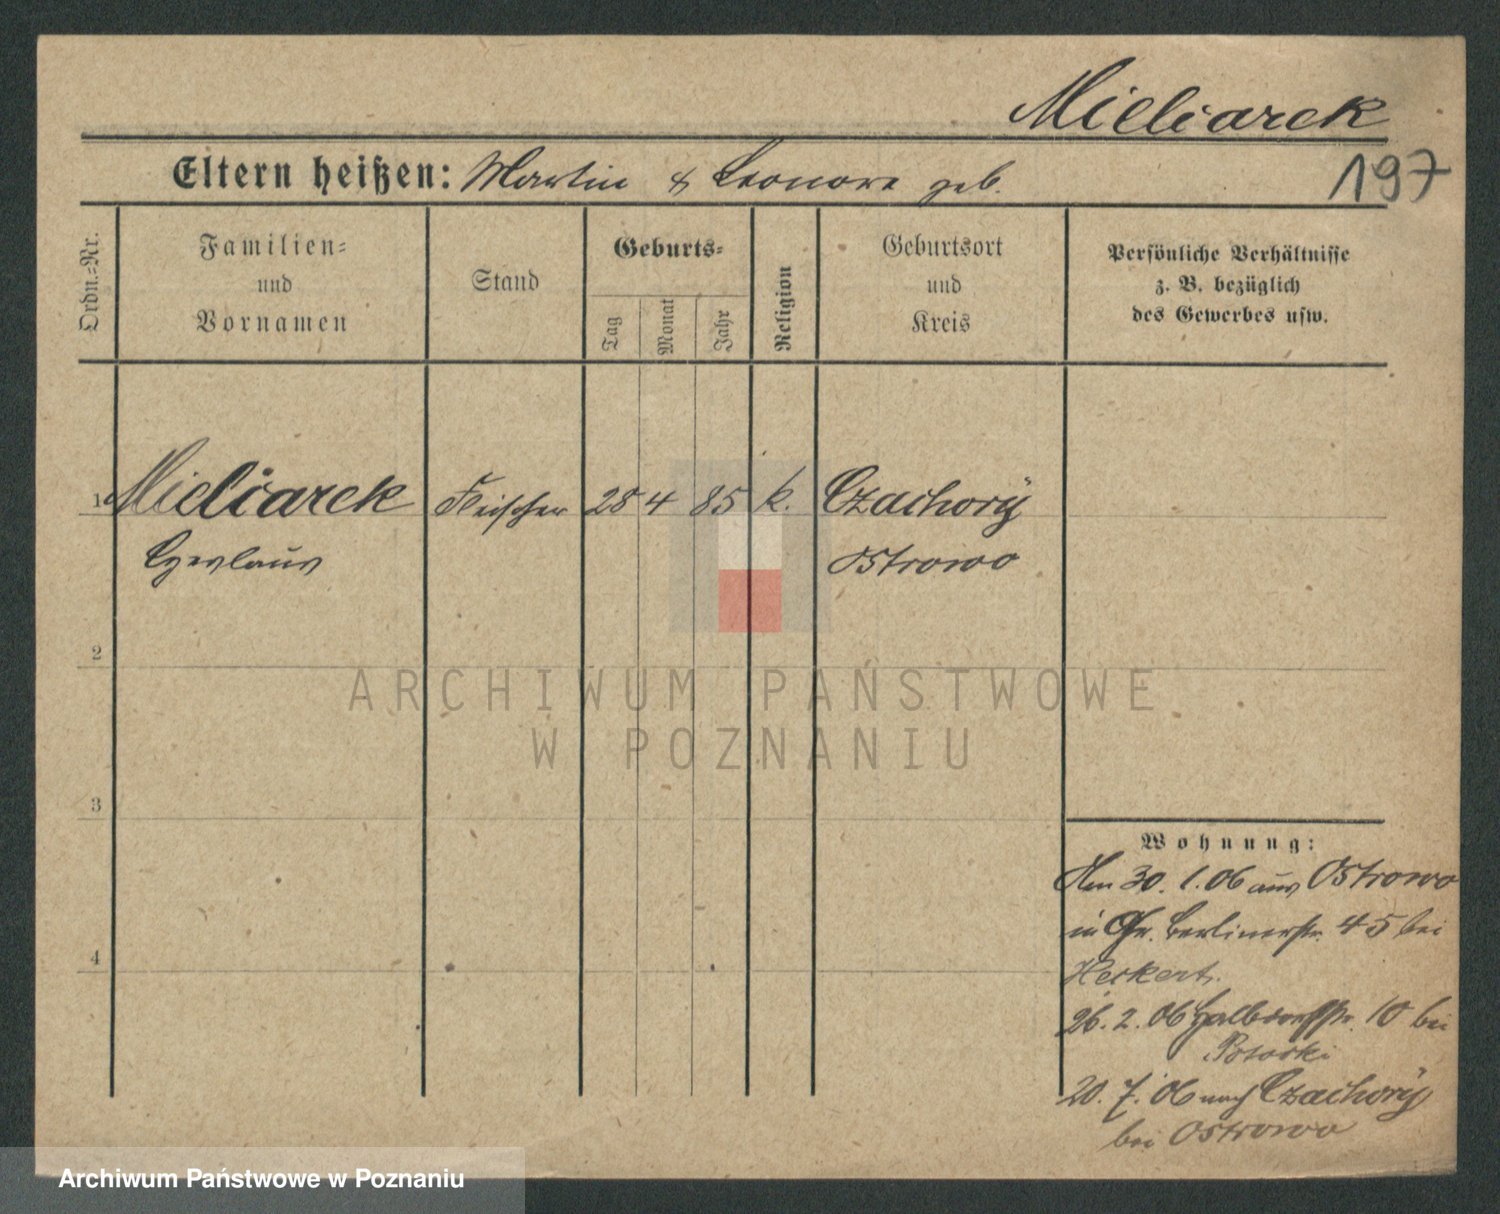 Mieliarek
197
Eltern heißen: Martin & Leonore geb.
Ordn.-Nr.
Familien-
und
Vornamen
Stand
Geburts-
Tag
Monat
Jahr
Religion
Geburtsort
und
Kreis
Persönliche Verhältnisse
z. B. bezüglich
des Gewerbes usw.
1 Mieliarek Fleischer 28 4 85 k. Czachory
Czeslaus Ostrowo
2
ARCHIWUM PAŃSTWOWE
W POZNANIU
3
Wohnung:
Am 30. 1. 06 aus Ostrowo
in Gr. Berlinerstr. 45 bei
Heikert.
4
26. 2. 06 10 bei
20. 7. 06 nach Czachory
bei Ostrowo
Archiwum Państwowe w Poznaniu